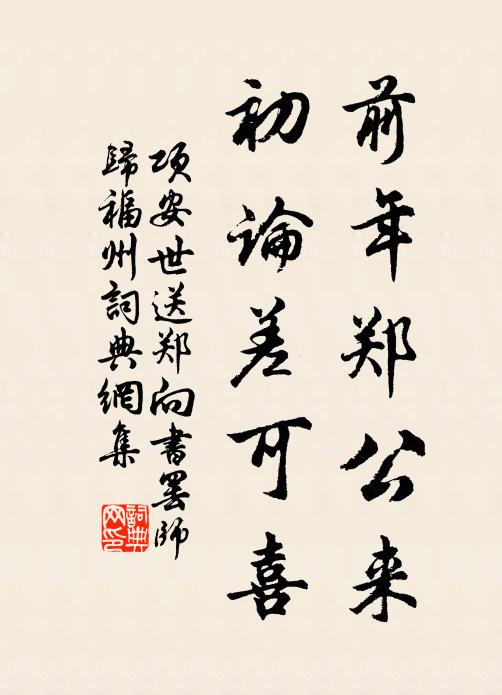 前年郑公来
初论差可喜
项安世送郑向書罢师
歸福州詞典網集
詞典网印